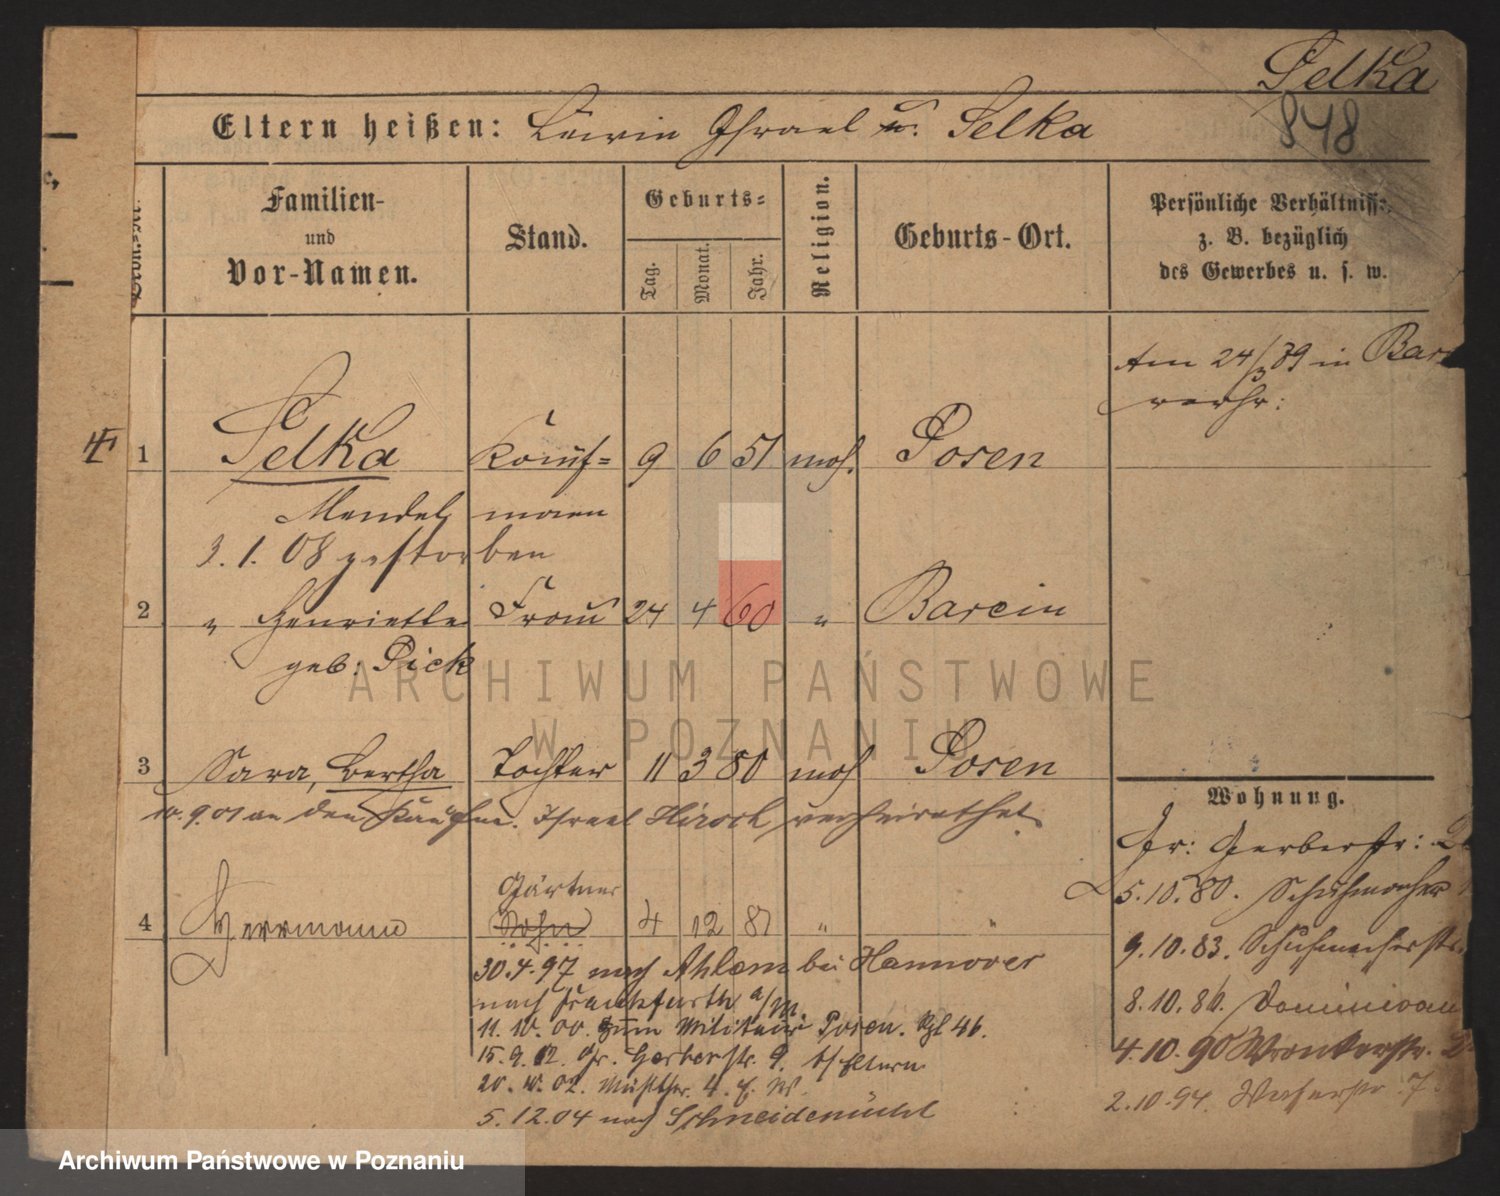 Selka
848
Eltern heißen: Lewin Israel u. Selka
Familien-
und
Vor-Namen.
Stand.
Geburts-
Tag.
Monat.
Jahr.
Religion.
Geburts-Ort.
Persönliche Verhältnisse,
z. B. bezüglich
des Gewerbes u. s. w.
Am 24/3 79 in
verh:
1 Selka Kauf= 9 6 51 mos. Posen
Mendel mann
3. 1. 08 gestorben
2 " Henriette Frau 24 4 60 " Barcin
geb: Pick
3 Sara, Bertha Tochter 11 3 80 mos Posen
10. 9. 01 an den Kaufm. Israel Hirsch verheirathet
Wohnung.
Gr: Gerberstr:
5. 10. 80. Schuhmacher
9. 10. 83. Schuhmacherstr.
8. 10. 86. Dominican
4. 10. 90 Wronkerstr.
2. 10. 94. Wasserstr 7.
Gärtner
4 Herrmann Sohn 4 12 81 " "
30. 4. 97 nach Ahlem bei Hannover
nach Frankfurth a/M.
11. 10. 00. zum Militair Posen. Rgl 46.
15. 9. 02. Gr. Gerberstr. 9. b/ Eltern
20. 10. 02. 4.
5. 12. 04 nach Schneidemühl
ARCHIWUM PAŃSTWOWE
W POZNANIU
Archiwum Państwowe w Poznaniu